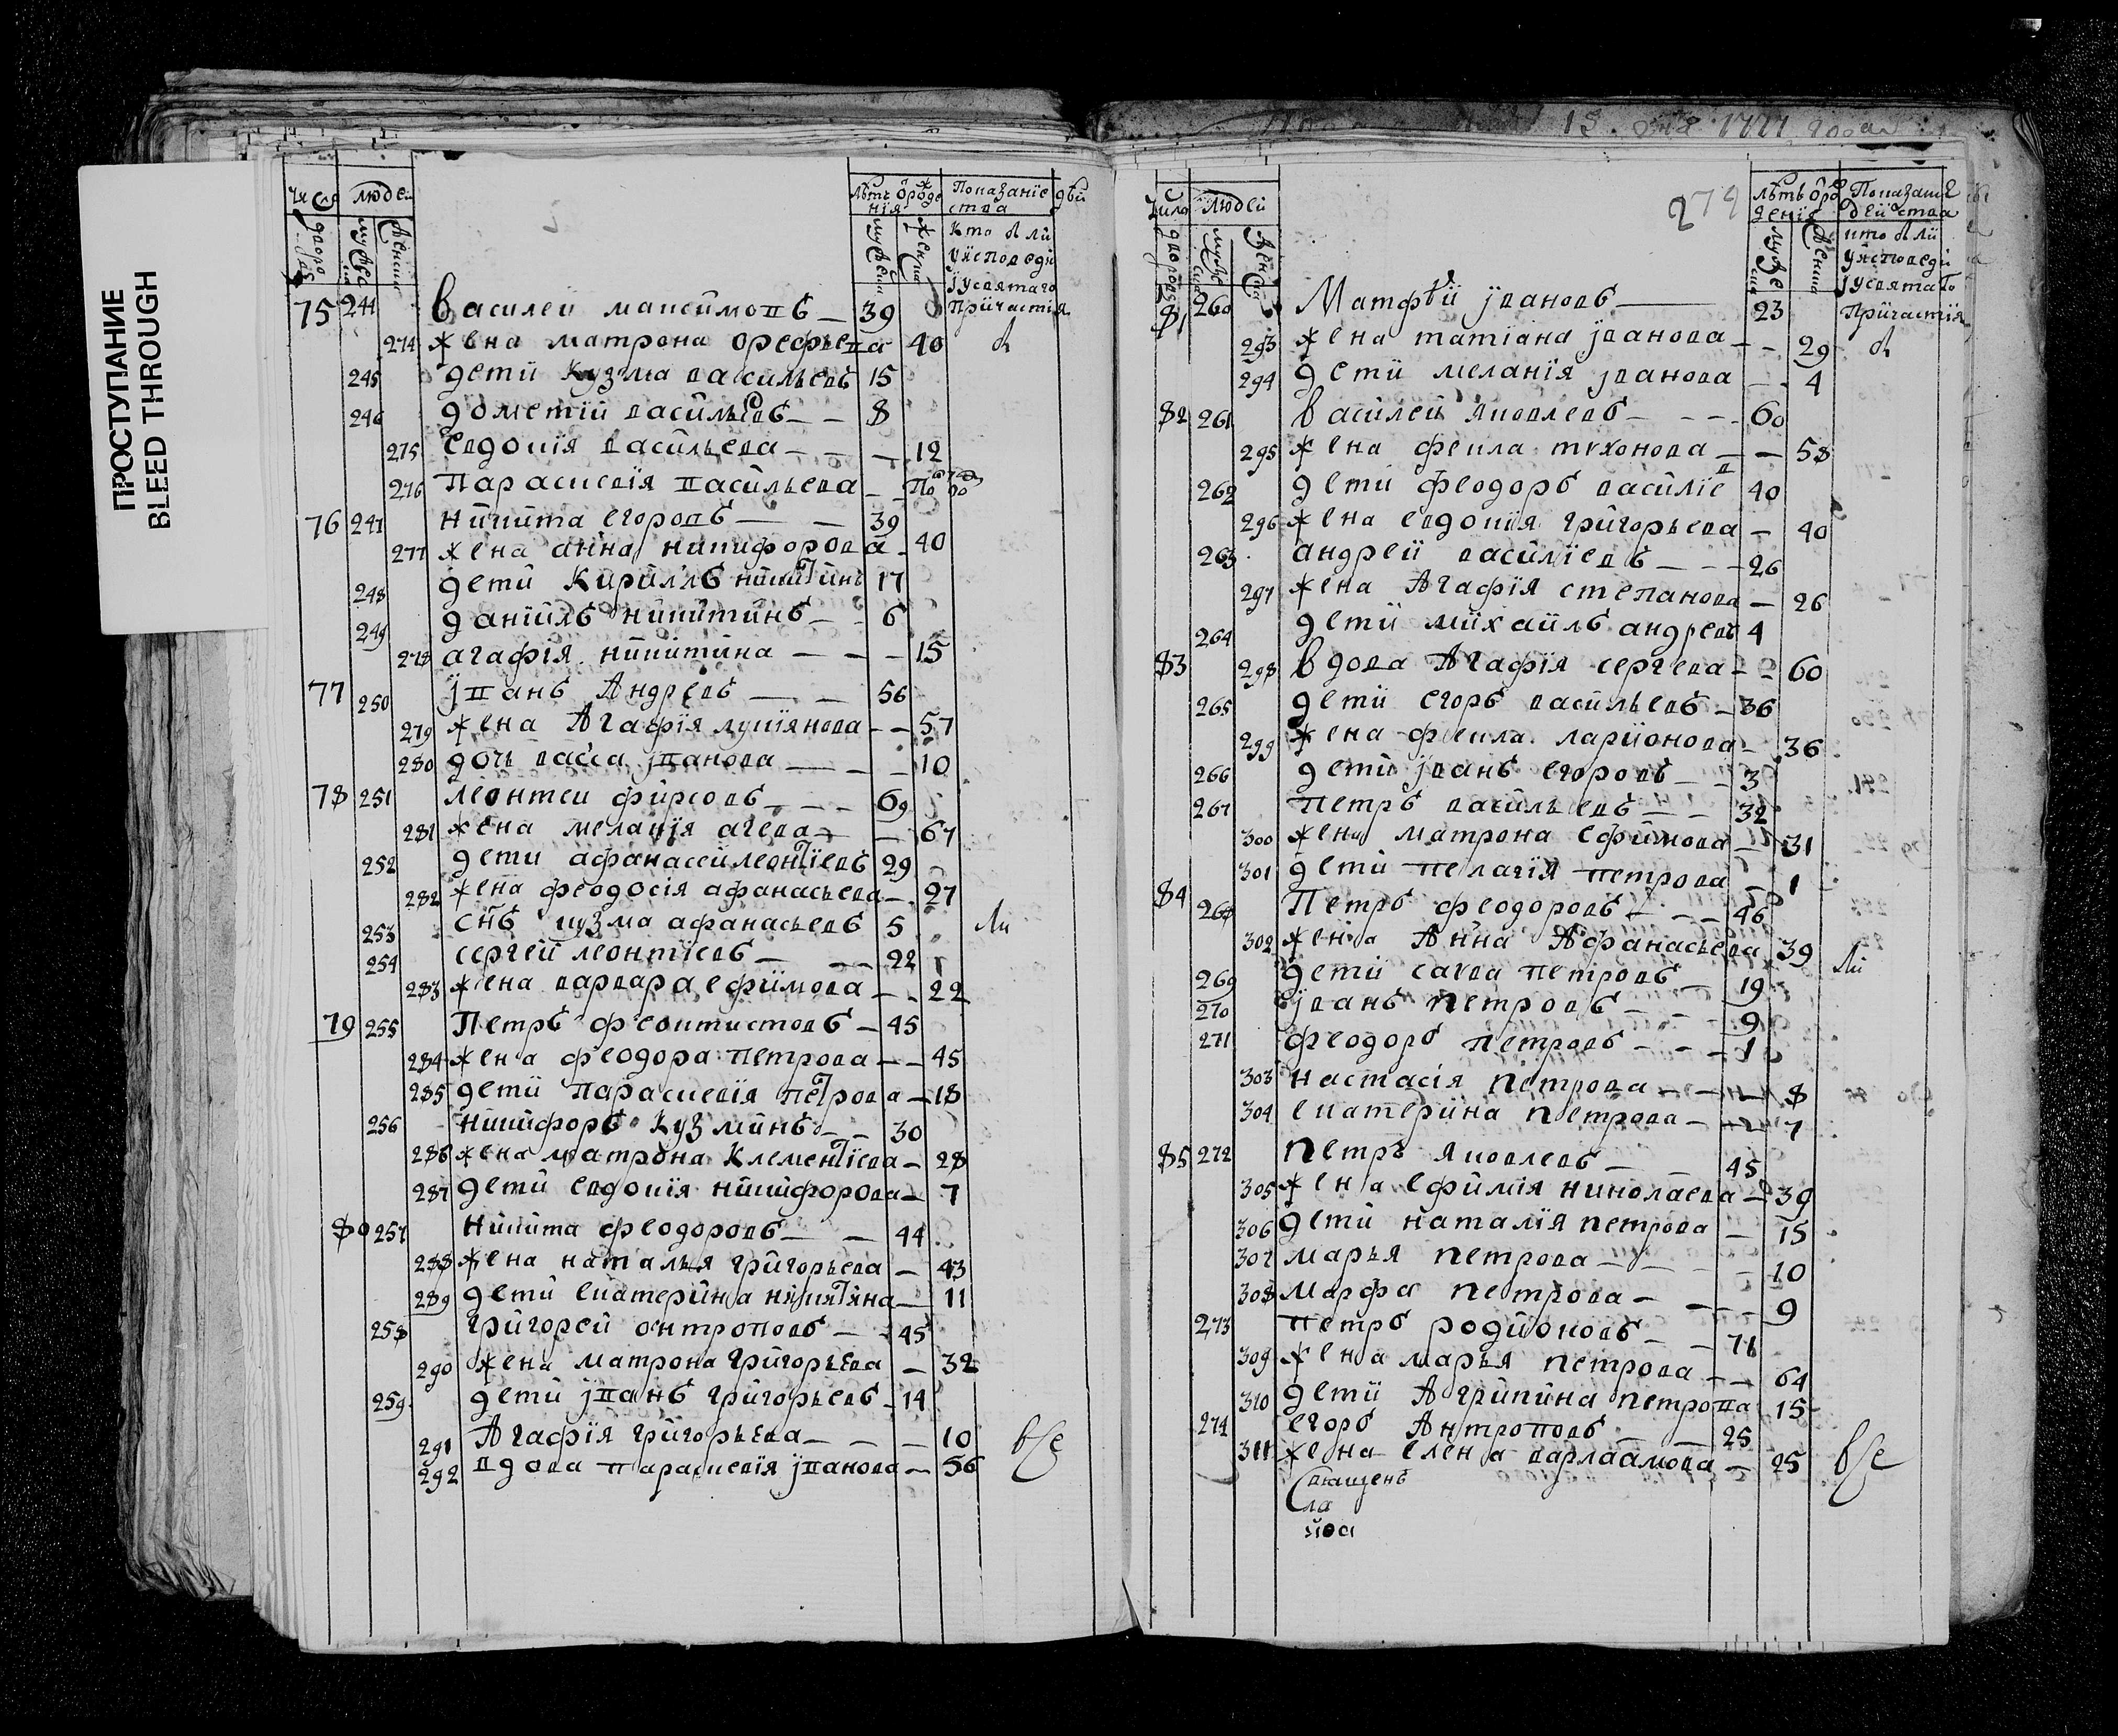 ПРОСТУПАНИЕ
BLEED THROUGH
Число людей лѣтъ ѿ рожде Показанïе дѣй
нïя ства
кто был
у исповеди
и у святаго
75 244 Василей максимовъ — 39 причастия
274 жена матрона орефьева 40
245 дети кузма васильевъ 15
246 дометïй васильевъ — — 8
275 евдокïя васильева — — — 12
276 Параскевïя васильева — —
76 247 никита егоровъ — — 39
277 жена анна никифорова — 40
248 дети Кириллъ никитинъ 17
249 данïилъ никитинъ — — 6
278 агафïя никитина — — — 15
77 250 јванъ Андревъ — — 56
279 жена Агафïя лукïянова — — 57
280 дочь васса јванова — — — 10
78 251 леонтеи фирсовъ — — — 69
281 жена меланïя агева — — 67
252 дети афанасей леонтïевъ 29
282 жена феодосïя афанасьева — 27
253 снъ кузма афанасьевъ 5
254 сергей леонтïевъ — — — 22
283 жена варвара ефимова — — 22
79 255 Петръ феоктистовъ — 45
284 жена феодора петрова — — 45
285 дети параскевïя петрова — 18
256 никифоръ кузминъ — — 30
286 жена матрона Клементïева — 28
287 дети евдокïя никифорова — 7
80 257 Никита феодоровъ — — 44
288 жена наталья григорьева — 43
289 дети екатерина никитина — 11
258 григорей онтроповъ — — 45
290 жена матрона григорьева — 32
259 дети јванъ григорьевъ — 14
291 Агафïя григорьева — — — 10
292 вдова параскевïя јванова — 56 всѣ
279
людей лѣтъ ѿ рож Показанïе
денïя действа
кто был
у исповеди
и у святаго
81 260 Матфѣй јвановъ — 23 причастïя
293 жена татïана јванова — — 29
294 дети меланïя јванова — — 4
82 261 Василей яковлевъ — — — 60
295 жена фекла тихонова — — 58
262 дети феодоръ василïев 40
296 жена евдокïя григорьева — 40
263 андрей василïевъ — — — 26
297 жена Агафïя степанова — 26
264 дети михаилъ андревъ 4
83 298 Вдова Агафïя сергева — — 60
265 дети егоръ васильевъ — 36
299 жена фекла ларионова — 36
266 дети јванъ егоровъ — — 3
267 петръ васильевъ — — 32
300 жена матрона ефимова — 31
301 дети пелагïя петрова — 1
84 268 Петръ феодоровъ — — — 46
302 жена Анна Афанасьева 39
269 дети савва петровъ — 19
270 јванъ петровъ — — — 9
271 феодоръ петровъ — — — 1
303 настасïя петрова — — — 8
304 екатерина петрова — — 7
85 272 петръ яковлевъ — — 45
305 жена ефимïя николаева — 39
306 дети наталïя петрова — 15
307 марья петрова — — — 10
308 марфа петрова — — — 9
273 петръ родионовъ — — 71
309 жена марья петрова — — 64
310 дети Агрипина петрова 15
274 егоръ Антроповъ — — 25
311 жена елена варлаамова — 25 всѣ